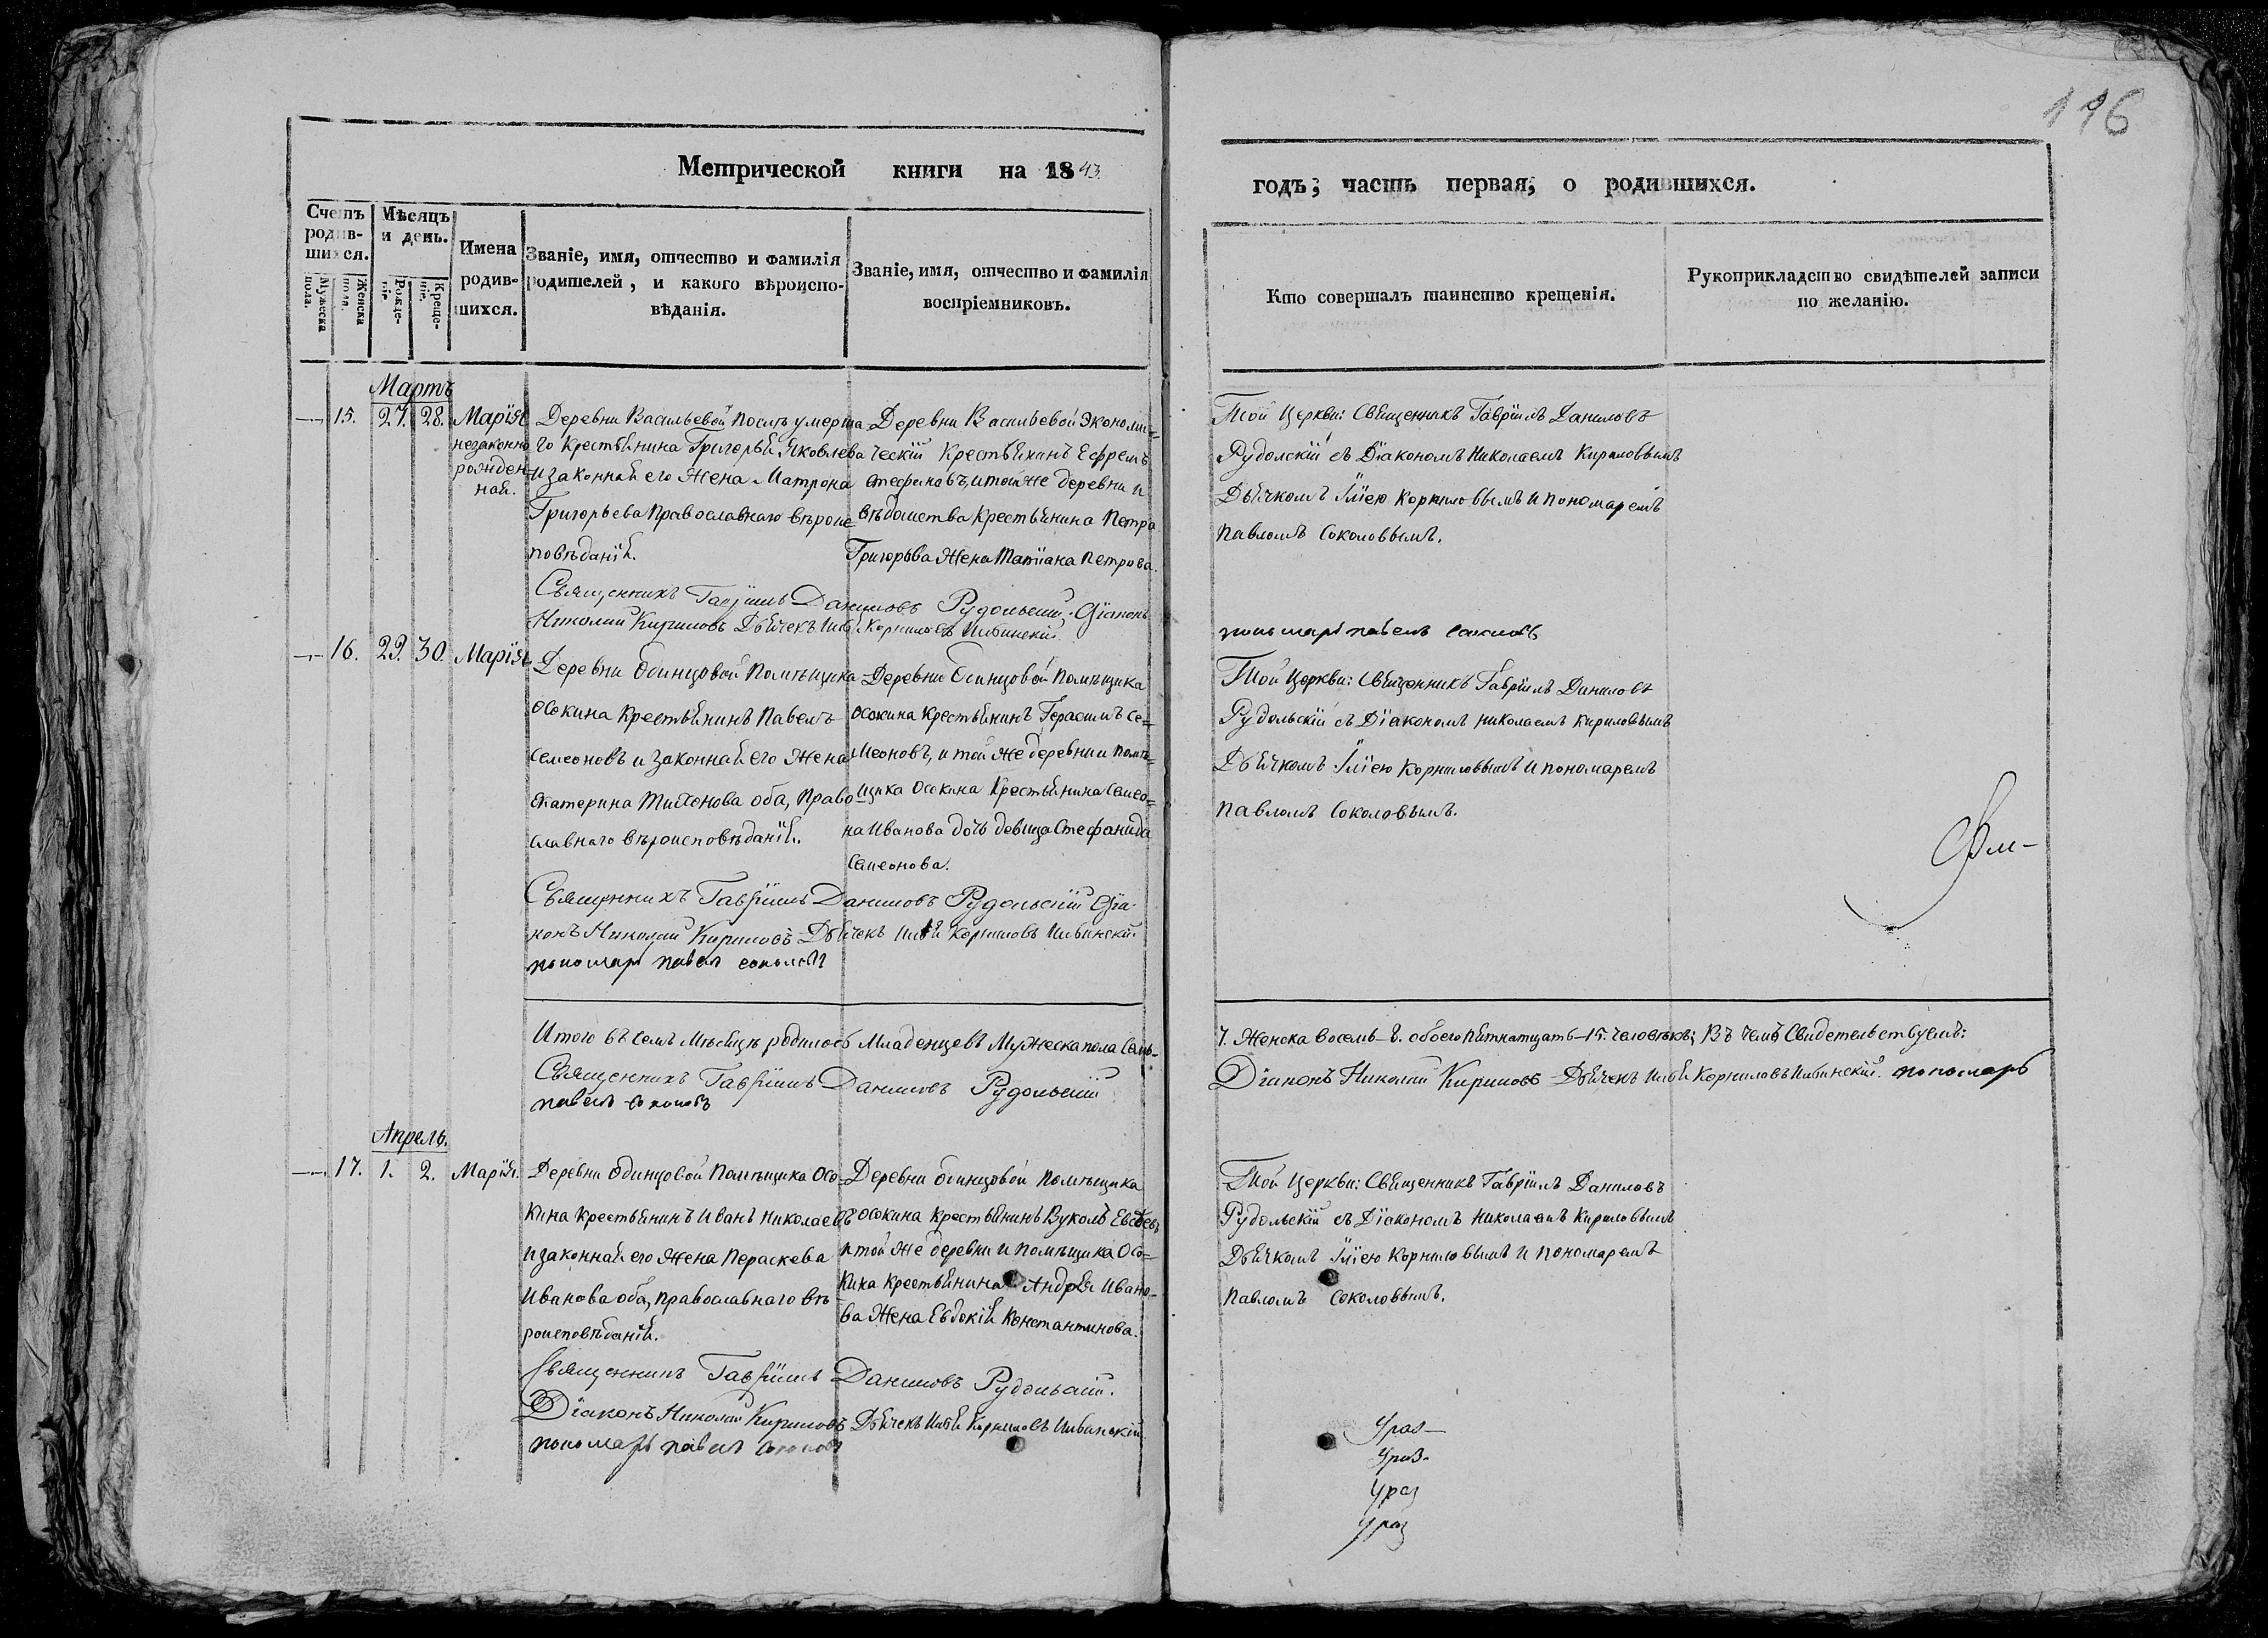 196
Метрической книги на 1843
годъ; часть первая, о родившихся.
Счетъ родив-шихся.
Мужеска пола.
Женска пола.
Мѣсяцъ и день.
Рожде-нiе.
Креще-нiе.
Имена родив-шихся.
Званіе, имя, отчество и фамилія
родителей, и какого вѣроиспо-
вѣданія.
Званіе, имя, отчество и фамилія
воспріемниковъ.
Кто совершалъ таинство крещенія.
Рукоприкладство свидѣтелей записи
по желанію.
Мартъ
15. 27. 28. Марія
незаконно
рожден
ная.
Деревни Васильевой послѣ умерша
го крестьянина Григорья Яковлева
и законная его жена Матрона
Григорьева Православнаго вѣроис
повѣданія.
Деревни Васильевой Экономи=
ческій крестьянинъ Ефремъ
Стефановъ, и той же деревни и
вѣдомства крестьянина Петра
Григорьва жена Татіана Петрова.
Той Церкви: Священникъ Гавріилъ Даниловъ
Рудольскій съ Діакономъ Николаемъ Кириловымъ
Дьячкомъ Иліею Корниловымъ и пономаремъ
Павломъ Соколовымъ.
Священникъ Гавріилъ Даниловъ Рудольскій, Діаконъ
Николай Кириловъ Дьячекъ Илья Корниловъ
пономарь павелъ соколовъ
16. 29. 30. Марія
Деревни Одинцовой Помѣщика
Осокина крестьянинъ Павелъ
Семеоновъ и законная его жена
Екатерина Тихонова оба, Право
славнаго вѣроисповѣданія.
Деревни Одинцовой Помѣщика
Осокина крестьянинъ Герасимъ Се=
меоновъ, и той же деревни и помѣ=
щика Осокина крестьянина Семео=
на Иванова дочь девица Стефанида
Семеонова.
Той Церкви: Священникъ Гавріилъ Даниловъ
Рудольскій съ Діакономъ Николаемъ Кириловымъ
Дьячкомъ Иліею Корниловымъ и пономаремъ
Павломъ Соколовымъ.
Священникъ Гавріилъ Даниловъ Рудольскій Діа
конъ Николай Кириловъ Дьячекъ Илья Корниловъ
пономарь павелъ соколовъ
Итого въ семъ Мѣсяцѣ родилось Младенцевъ Мужеска пола семь-
7. Женска восемь-8. обоего пятнатцать-15. человѣкъ; Въ чемъ Свидетельствуемъ:
Священникъ Гавріилъ Даниловъ Рудольскій
Діаконъ Николай Кириловъ Дьячекъ Илья Корниловъ пономарь
павелъ соколовъ
Апрель.
17. 1. 2. Марія.
Деревни Одинцовой Помѣщика Осо=
кина крестьянинъ Иванъ Николаевъ
и законная его жена Пераскева
Иванова оба, православнаго вѣ
роисповѣданія.
Деревни Одинцовой помѣщика
Осокина крестьянинъ Вуколъ Евсѣевъ
и той же деревни и помѣщика Осо=
кина крестьянина Андрея Ивано-
ва жена Евдокія Константинова.
Той Церкви: Священникъ Гавріилъ Даниловъ
Рудольскій съ Діакономъ Николаемъ Кириловымъ
Дьячкомъ Иліею Корниловымъ и пономаремъ
Павломъ Соколовымъ.
Священникъ Гавріилъ Даниловъ Рудольскій.
Діаконъ Николай Кириловъ Дьячекъ Илья Корниловъ
пономарь павелъ соколовъ